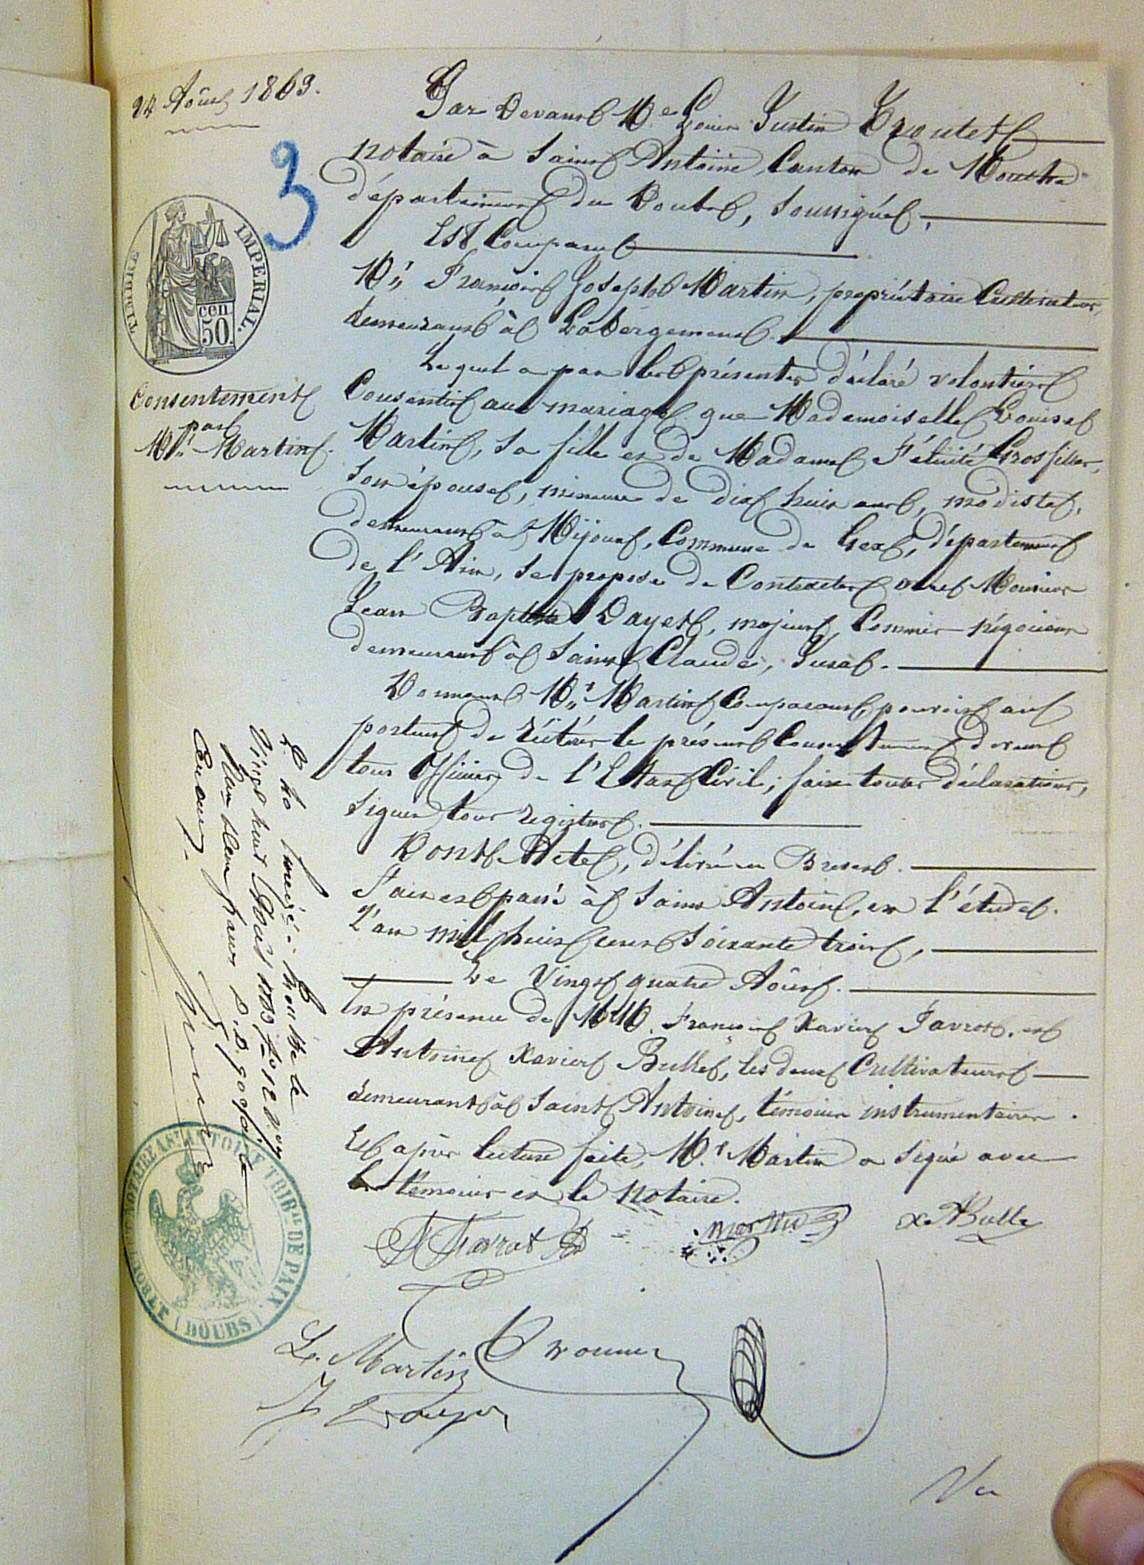 24 Août 1863.
3
TIMBRE IMPERIAL
50 cen
Consentement
par
Mr. Martin.
Par Devant Me Louis Justin Troutet
notaire à Saint Antoine, Canton de Mouthe
département du Doubs, soussigné,
Est Comparu
Mr. François Joseph Martin, propriétaire Cultivateur,
demeurant à Labergement.
Lequel a par les présentes déclaré volontiers
Consentir au mariage que Mademoiselle Louise
Martin, sa fille et de Madame Félicité Grosfiller,
son épouse, mineure de dix huit ans, modiste,
demeurant à Mijoux, Commune de Gex, département
de l'Ain, se propose de Contracter avec Monsieur
Jean Baptiste Dayet, majeur, Commis négociant
demeurant à Saint Claude, Jura.
Donnant Mr. Martin Comparant, pouvoir au
porteur de réitérer le présent Consentement devant
tous Officiers de l'Etat Civil, faire toutes déclarations,
signer tous registres.
Dont Acte, délivré en Brevet.
Fait et passé à Saint Antoine, en l'étude.
L'an mil huit cent soixante trois,
Le Vingt quatre Août.
En présence de MM. François Xavier Favrot, et
Antoine Xavier Bulle, les deux Cultivateurs
demeurant à Saint Antoine, témoins instrumentaires.
Et après lecture faite, Mr. Martin a signé avec
les témoins et le notaire.
Enregistré à Mouthe le
vingt huit Août 1863, fo 12
Reçu deux francs
F Favrot
Martin
X Bulle
L. Martin
TRIB. DE PAIX
DOUBS
Vu